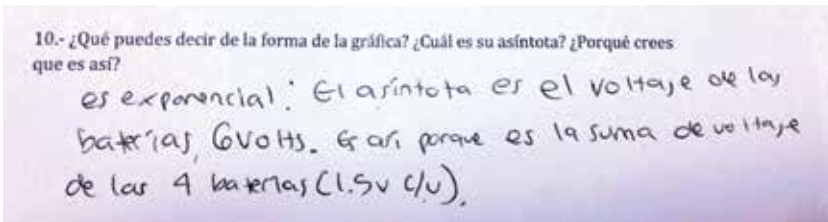 10.- ¿Qué puedes decir de la forma de la gráfica? ¿Cuál es su asíntota? ¿Porqué crees
que es así?
es exponencial. El asíntota es el voltaje de las
baterías, 6volts. Es así porque es la suma de voltaje
de las 4 baterías (1.5v c/u).